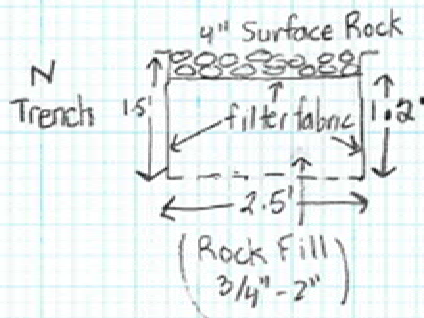 4" Surface Rock
N
Trench
1.5'
filter fabric
1.2'
2.5'
(Rock Fill
3/4" - 2")